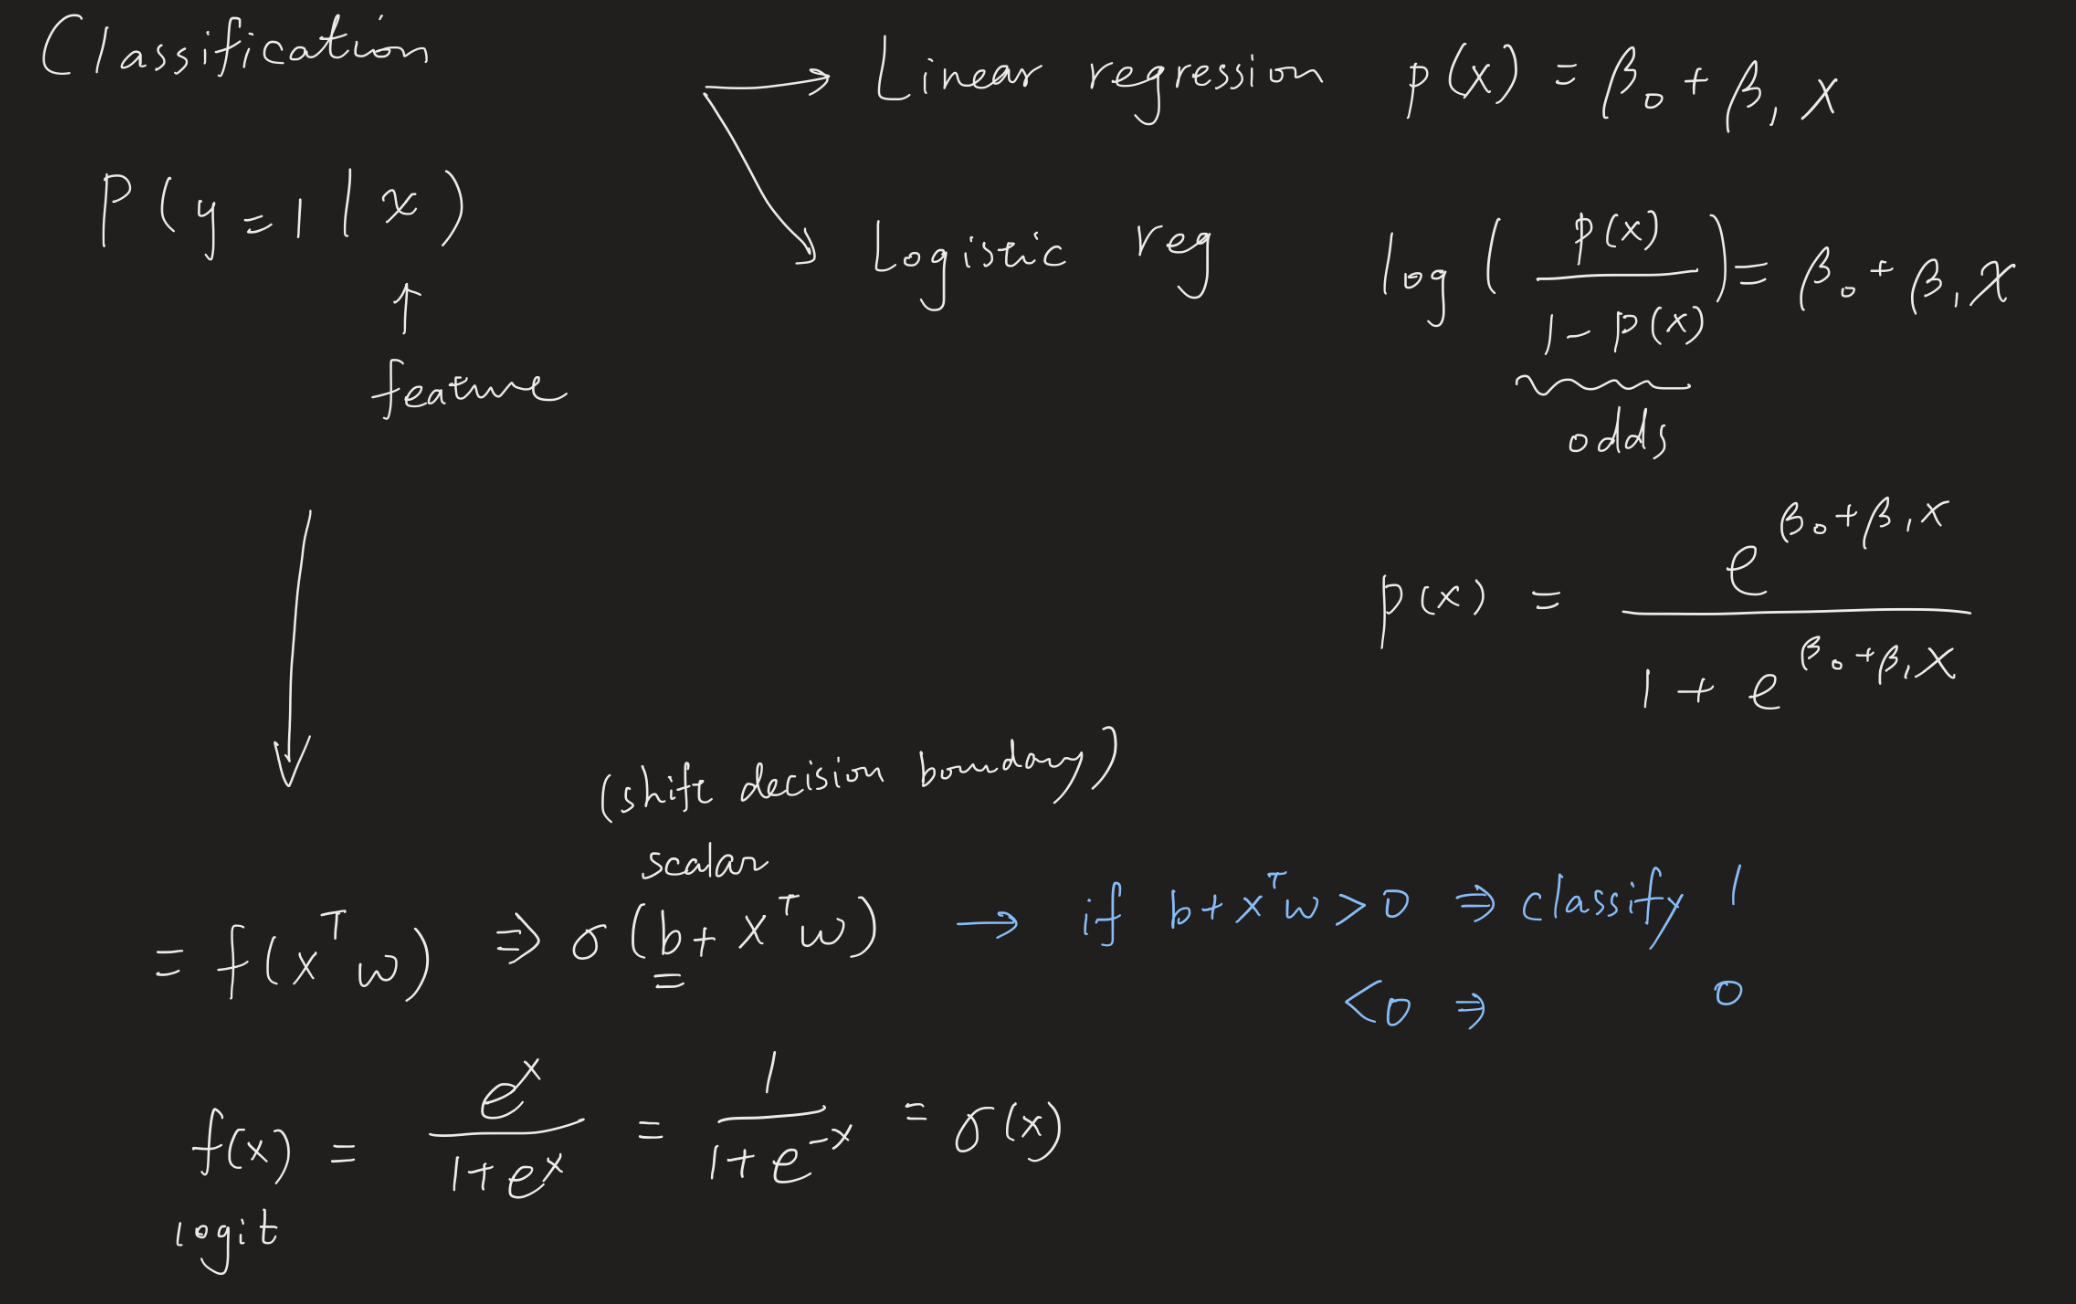 Classification
→ Linear regression p(x) = β₀ + β₁ x
P(y=1 | x)
↑
feature
→ Logistic reg log ( p(x) / 1 - p(x) ) = β₀ + β₁ x
odds
p(x) = e^{β₀+β₁x} / 1 + e^{β₀+β₁x}
(shift decision boundary)
scalar
= f(xᵀw) ⇒ σ(b + xᵀw) → if b + xᵀw > 0 ⇒ classify 1
< 0 ⇒ 0
f(x) = e^x / 1+e^x = 1 / 1+e^{-x} = σ(x)
logit